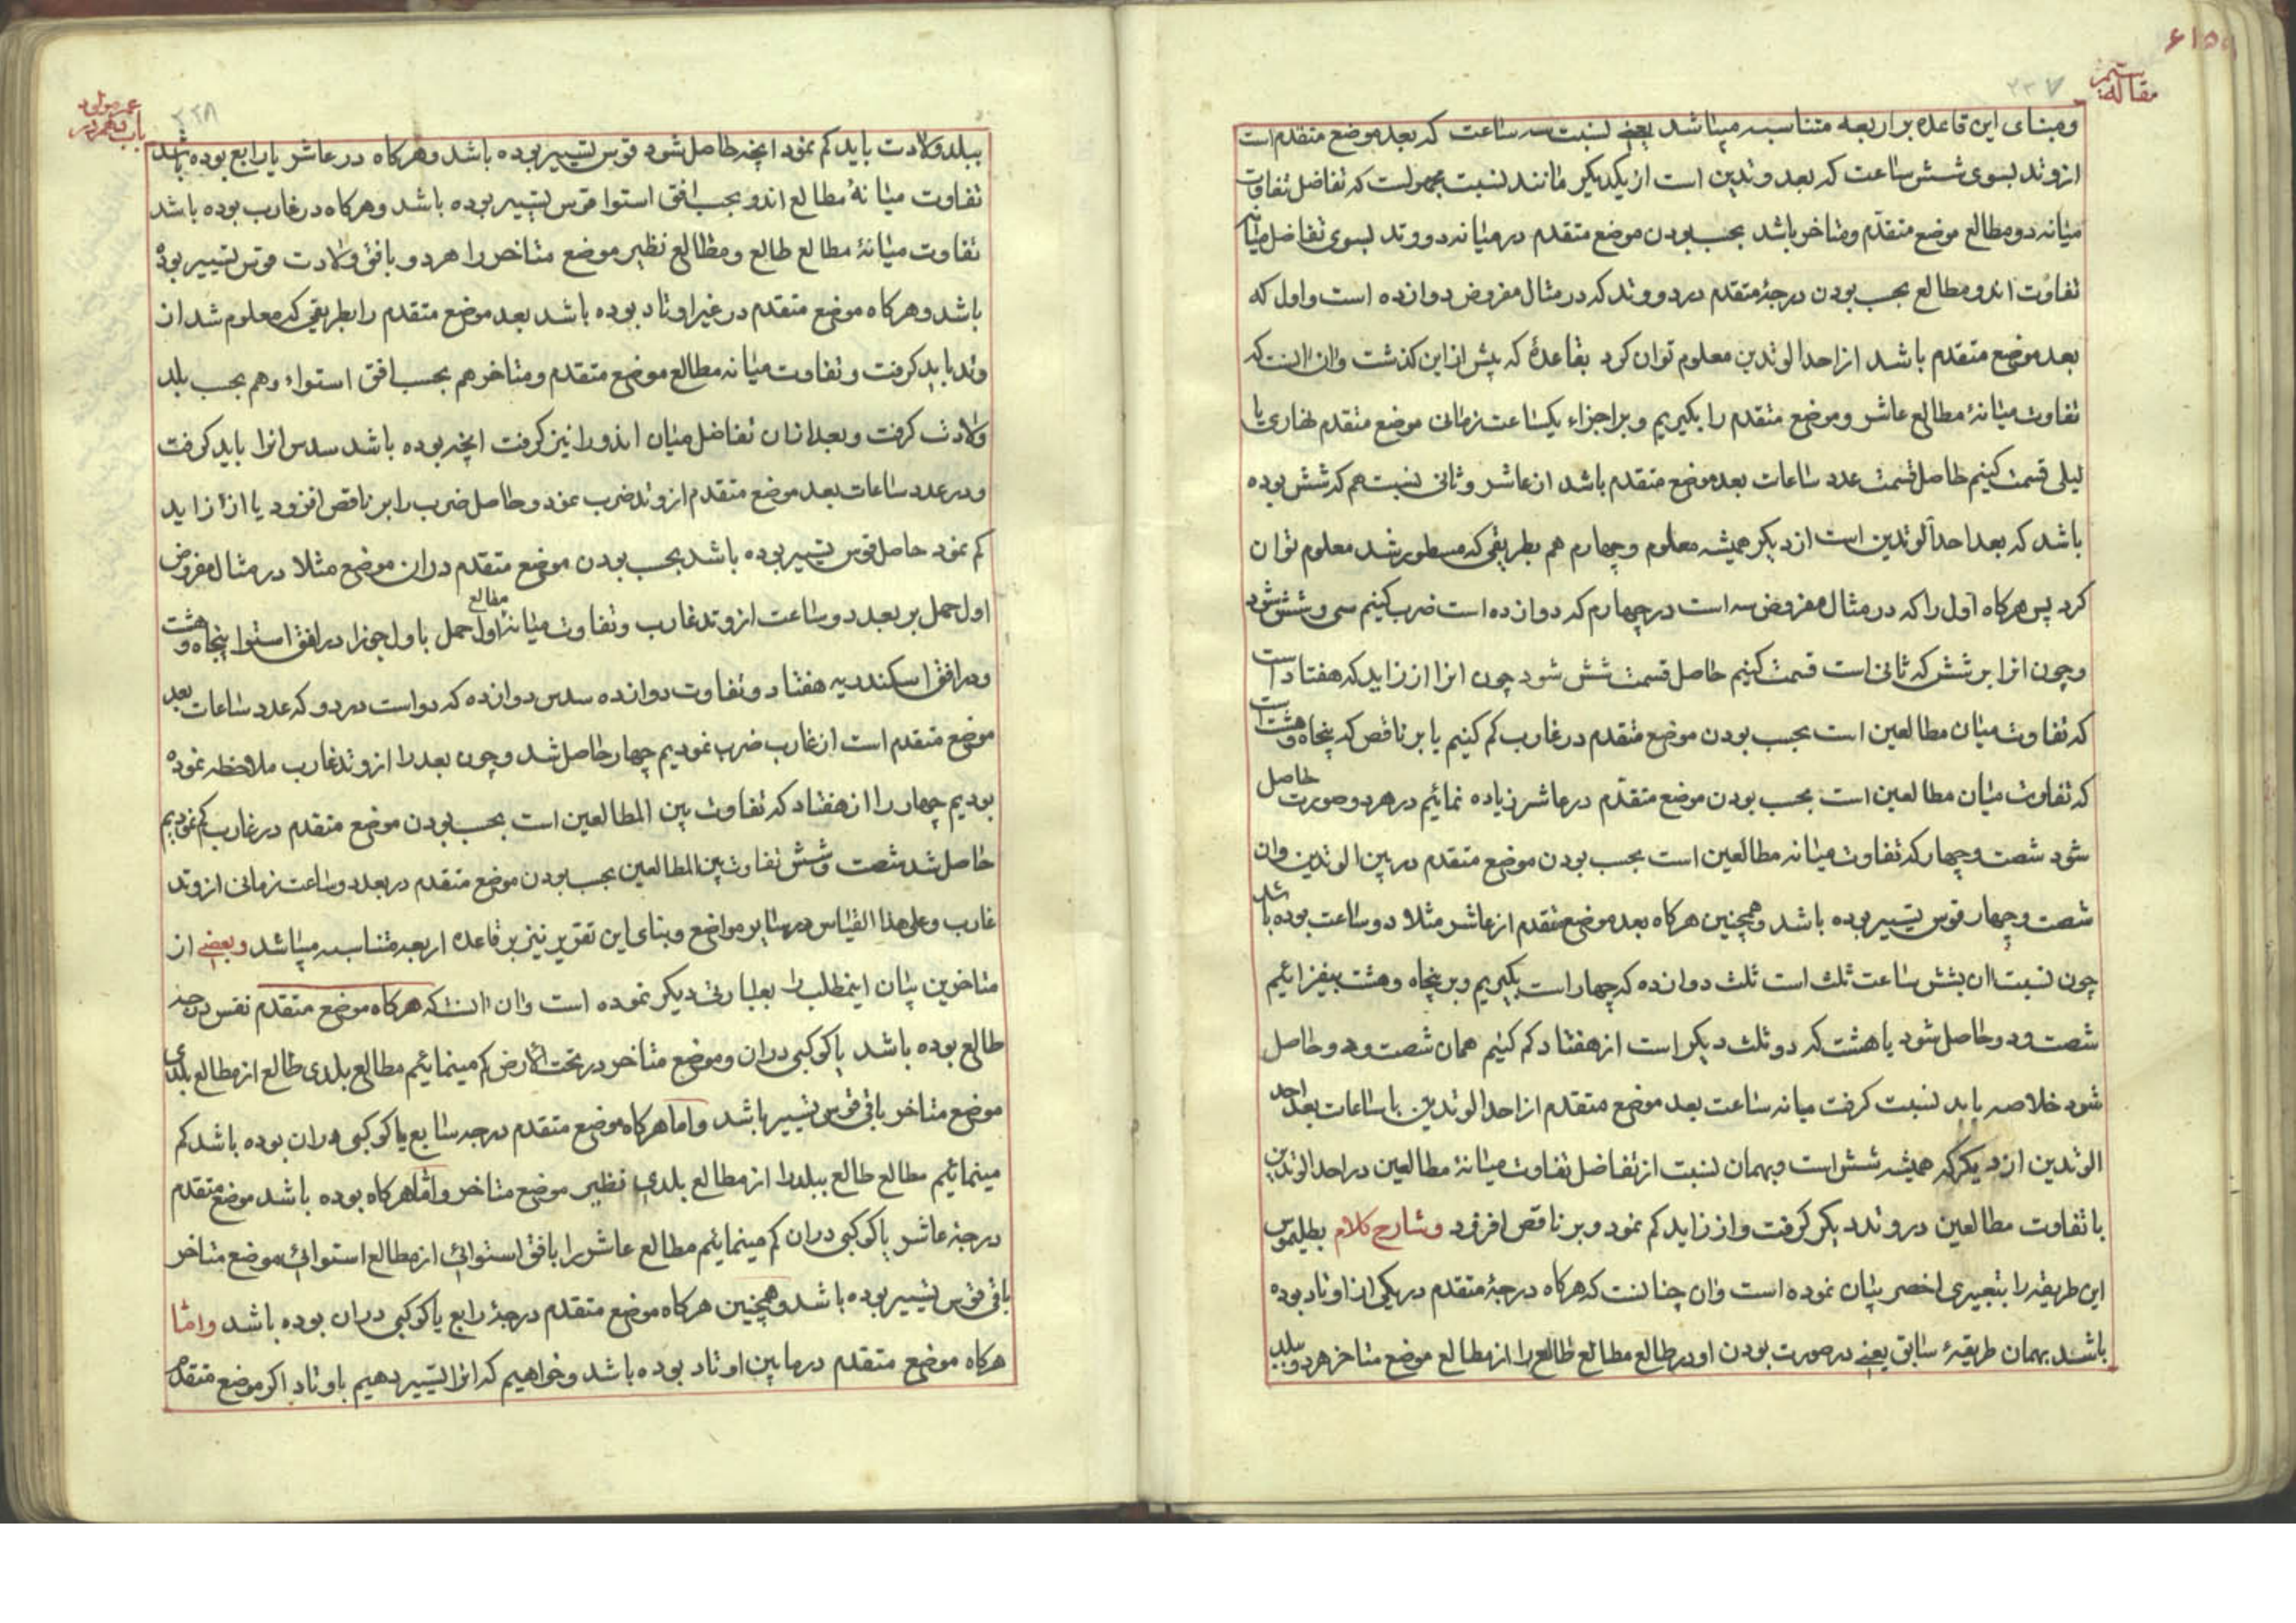 مقاله سیم
۲۳۷
و مبنای این قاعده بر اربعه متناسبه میباشد یعنی نسبت سه ساعت که بعد موضع متقدم است
از وتد بسوی شش ساعت که بعد وتدین است از یکدیگر مانند نسبت مجهولست که تفاضل تفاوت
میانه دو مطالع موضع متقدم و متاخر باشد بحسب بودن موضع متقدم در میانه دو وتد بسوی تفاضل میانه
تفاوت اندو مطالع بحسب بودن درجهٔ متقدم در دو وتد که در مثال مفروض دوازده است و اول که
بعد موضع متقدم باشد از احد الوتدین معلوم توان کرد بقاعدهٔ که پیش از این کذشت و ان اانست که
تفاوت میانهٔ مطالع عاشر و موضع متقدم را بکیریم و بر اجزاء یکساعت زمانی موضع متقدم نهاری یا
لیلی قسمت کنیم حاصل قسمت عدد ساعات بعد موضع متقدم باشد از عاشر و ثانی نسبت هم که شش بوده
باشد که بعد احد الوتدین است از دیکر همیشه معلوم و چهارم هم بطریقی که مسطور شد معلوم توان
کرد پس هرکاه اول را که در مثال مفروض سه است در چهارم که دوازده است ضرب کنیم سی و شش شود
و چون انرا بر شش که ثانی است قسمت کنیم حاصل قسمت شش شود چون انرا از زاید که هفتاد است
که تفاوت میان مطالعین است بحسب بودن موضع متقدم در غارب کم کنیم یا بر ناقص که پنجاه و هشت است
که تفاوت میان مطالعین است بحسب بودن موضع متقدم در عاشر زیاده نمائیم در هر دو صورت حاصل
شود شصت و چهار که تفاوت میانه مطالعین است بحسب بودن موضع متقدم در بین الوتدین و ان
شصت و چهار قوس تسییر بوده باشد و همچنین هرکاه بعد موضع متقدم از عاشر مثلا دو ساعت بوده باشد
چون نسبت ان بشش ساعت ثلث است ثلث دوازده که چهار است بکیریم و بر پنجاه و هشت بیفزائیم
شصت و دو حاصل شود یا هشت که دو ثلث دیکر است از هفتاد کم کنیم همان شصت و دو حاصل
شود خلاصه باید نسبت کرفت میانه ساعت بعد موضع متقدم از احد الوتدین با ساعات بعد احد
الوتدین از دیکر که همیشه شش است و بهمان نسبت از تفاضل تفاوت میانهٔ مطالعین در احد الوتدین
با تفاوت مطالعین در وتد دیکر کرفت و از زاید کم نمود و بر ناقص افزود و شارح کلام بطلیموس
این طریقه را بتعبیری اخصر بیان نموده است و ان چنانست که هرکاه درجهٔ متقدم در یکی از اوتاد بوده
باشد بهمان طریقهٔ سابق یعنی در صورت بودن او در طالع مطالع طالع را از مطالع موضع متاخر هر دو ببلد
باب دهم در عمر مولود
۲۳۸
ببلد ولادت باید کم نمود انچه حاصل شود قوس تسییر بوده باشد و هرکاه در عاشر یا رابع بوده باشد
تفاوت میانهٔ مطالع اندو بحسب افق استوا قوس تسییر بوده باشد و هرکاه در غارب بوده باشد
تفاوت میانهٔ مطالع طالع و مطالع نظیر موضع متاخر را هر دو بافق ولادت قوس تسییر بوده
باشد و هرکاه موضع متقدم در غیر اوتاد بوده باشد بعد موضع متقدم را بطریقی که معلوم شد از
وتد باید کرفت و تفاوت میانه مطالع موضع متقدم و متاخر هم بحسب افق استواء و هم بحسب بلد
ولادت کرفت و بعد از ان تفاضل میان اندو را نیز کرفت انچه بوده باشد سدس انرا باید کرفت
و در عدد ساعات بعد موضع متقدم از وتد ضرب نمود و حاصل ضرب را بر ناقص افزود یا از زاید
کم نمود حاصل قوس تسییر بوده باشد بحسب بودن موضع متقدم در ان موضع مثلا در مثال مفروض
اول حمل بر بعد دو ساعت از وتد غارب و تفاوت میانهٔ مطالع اول حمل با اول جوزا در افق استوا پنجاه و هشت
و در افق اسکندریه هفتاد و تفاوت دوازده سدس دوازده که دو است در دو که عدد ساعات بعد
موضع متقدم است از غارب ضرب نمودیم چهار حاصل شد و چون بعد را از وتد غارب ملاحظه نموده
بودیم چهار را از هفتاد که تفاوت بین المطالعین است بحسب بودن موضع متقدم در غارب کم نمودیم
حاصل شد شصت و شش تفاوت بین المطالعین بحسب بودن موضع متقدم در بعد دو ساعت زمانی از وتد
غارب و علی هذا القیاس در سایر مواضع و بنای این تقریر نیز بر قاعده اربعه متناسبه میباشد و بعضی از
متاخرین بیان اینمطلب را بعبارتی دیکر نموده است و ان اانست که هرکاه موضع متقدم نفس درجه
طالع بوده باشد یا کوکبی در ان و موضع متاخر در تحت الارض کم مینمائیم مطالع بلدی طالع از مطالع بلدی
موضع متاخر باقی قوس تسییر باشد و اما هرکاه موضع متقدم درجه سابع یا کوکبی در ان بوده باشد کم
مینمائیم مطالع طالع ببلد را از مطالع بلدی نظیر موضع متاخر و اما هرکاه بوده باشد موضع متقدم
درجهٔ عاشر یا کوکبی در ان کم مینمائیم مطالع عاشر را بافق استوائی از مطالع استوائی موضع متاخر
باقی قوس تسییر بوده باشد و همچنین هرکاه موضع متقدم درجهٔ رابع یا کوکبی در ان بوده باشد و اما
هرکاه موضع متقدم در مابین اوتاد بوده باشد و خواهیم که انرا تسییر دهیم باوتاد اکر موضع متقدم